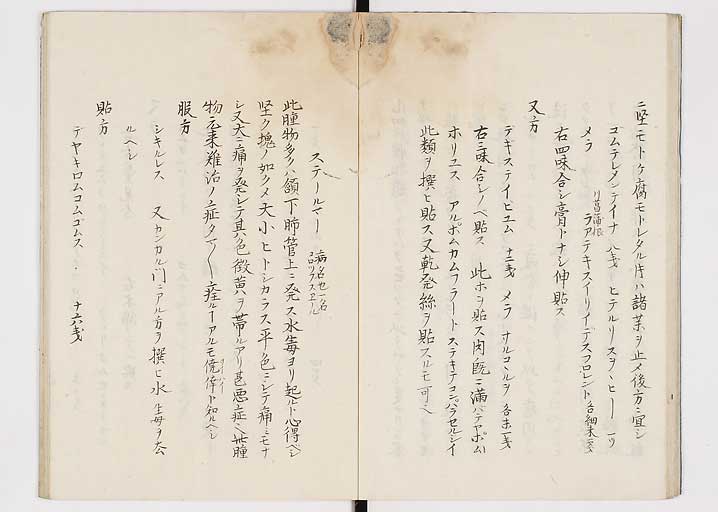 ニ堅モトケ腐モトレタル片ハ諸薬ヲ止メ後方ニ宜シ
コムテレメンテイナ 八戔 ヒテルリヲスヲヒ
メラ ラアテキスイリイデスフロレント 各細末
右四味合シ膏トナシ伸貼ス
又方
デキステイヒユム 十二戔 メラ オルコールタ 各
右三味合シノヘ貼ス 此ホヲ貼ス肉ノ既ニ満
ホリユス アルポムカムフラート ステキテコンパラセルシイ
此類ヲ撰ヒ貼ス又乾発絲ヲ貼スルモ可
ステールマー 病名也一名
此腫物多クハ頷下肺管上ニ発ス水毒ヨリ起ルト心得ヘシ
堅ク塊ノ如クメ大小ヒトシカラス平ノ色ニシテ痛ニモナ
シ又大ニ痛ヲ発シテ其色微黄ヲ帯ルアリ甚悪症 此腫
物元来難治ノ症タマ〱 痊ルーアルモ僥倖ト知ルヘシ
服方
シキルレス 又カンカル門ニアル方ヲ撰ヒ水
ルヘシ
貼方
デヤキロムコムゴムス 十六戔